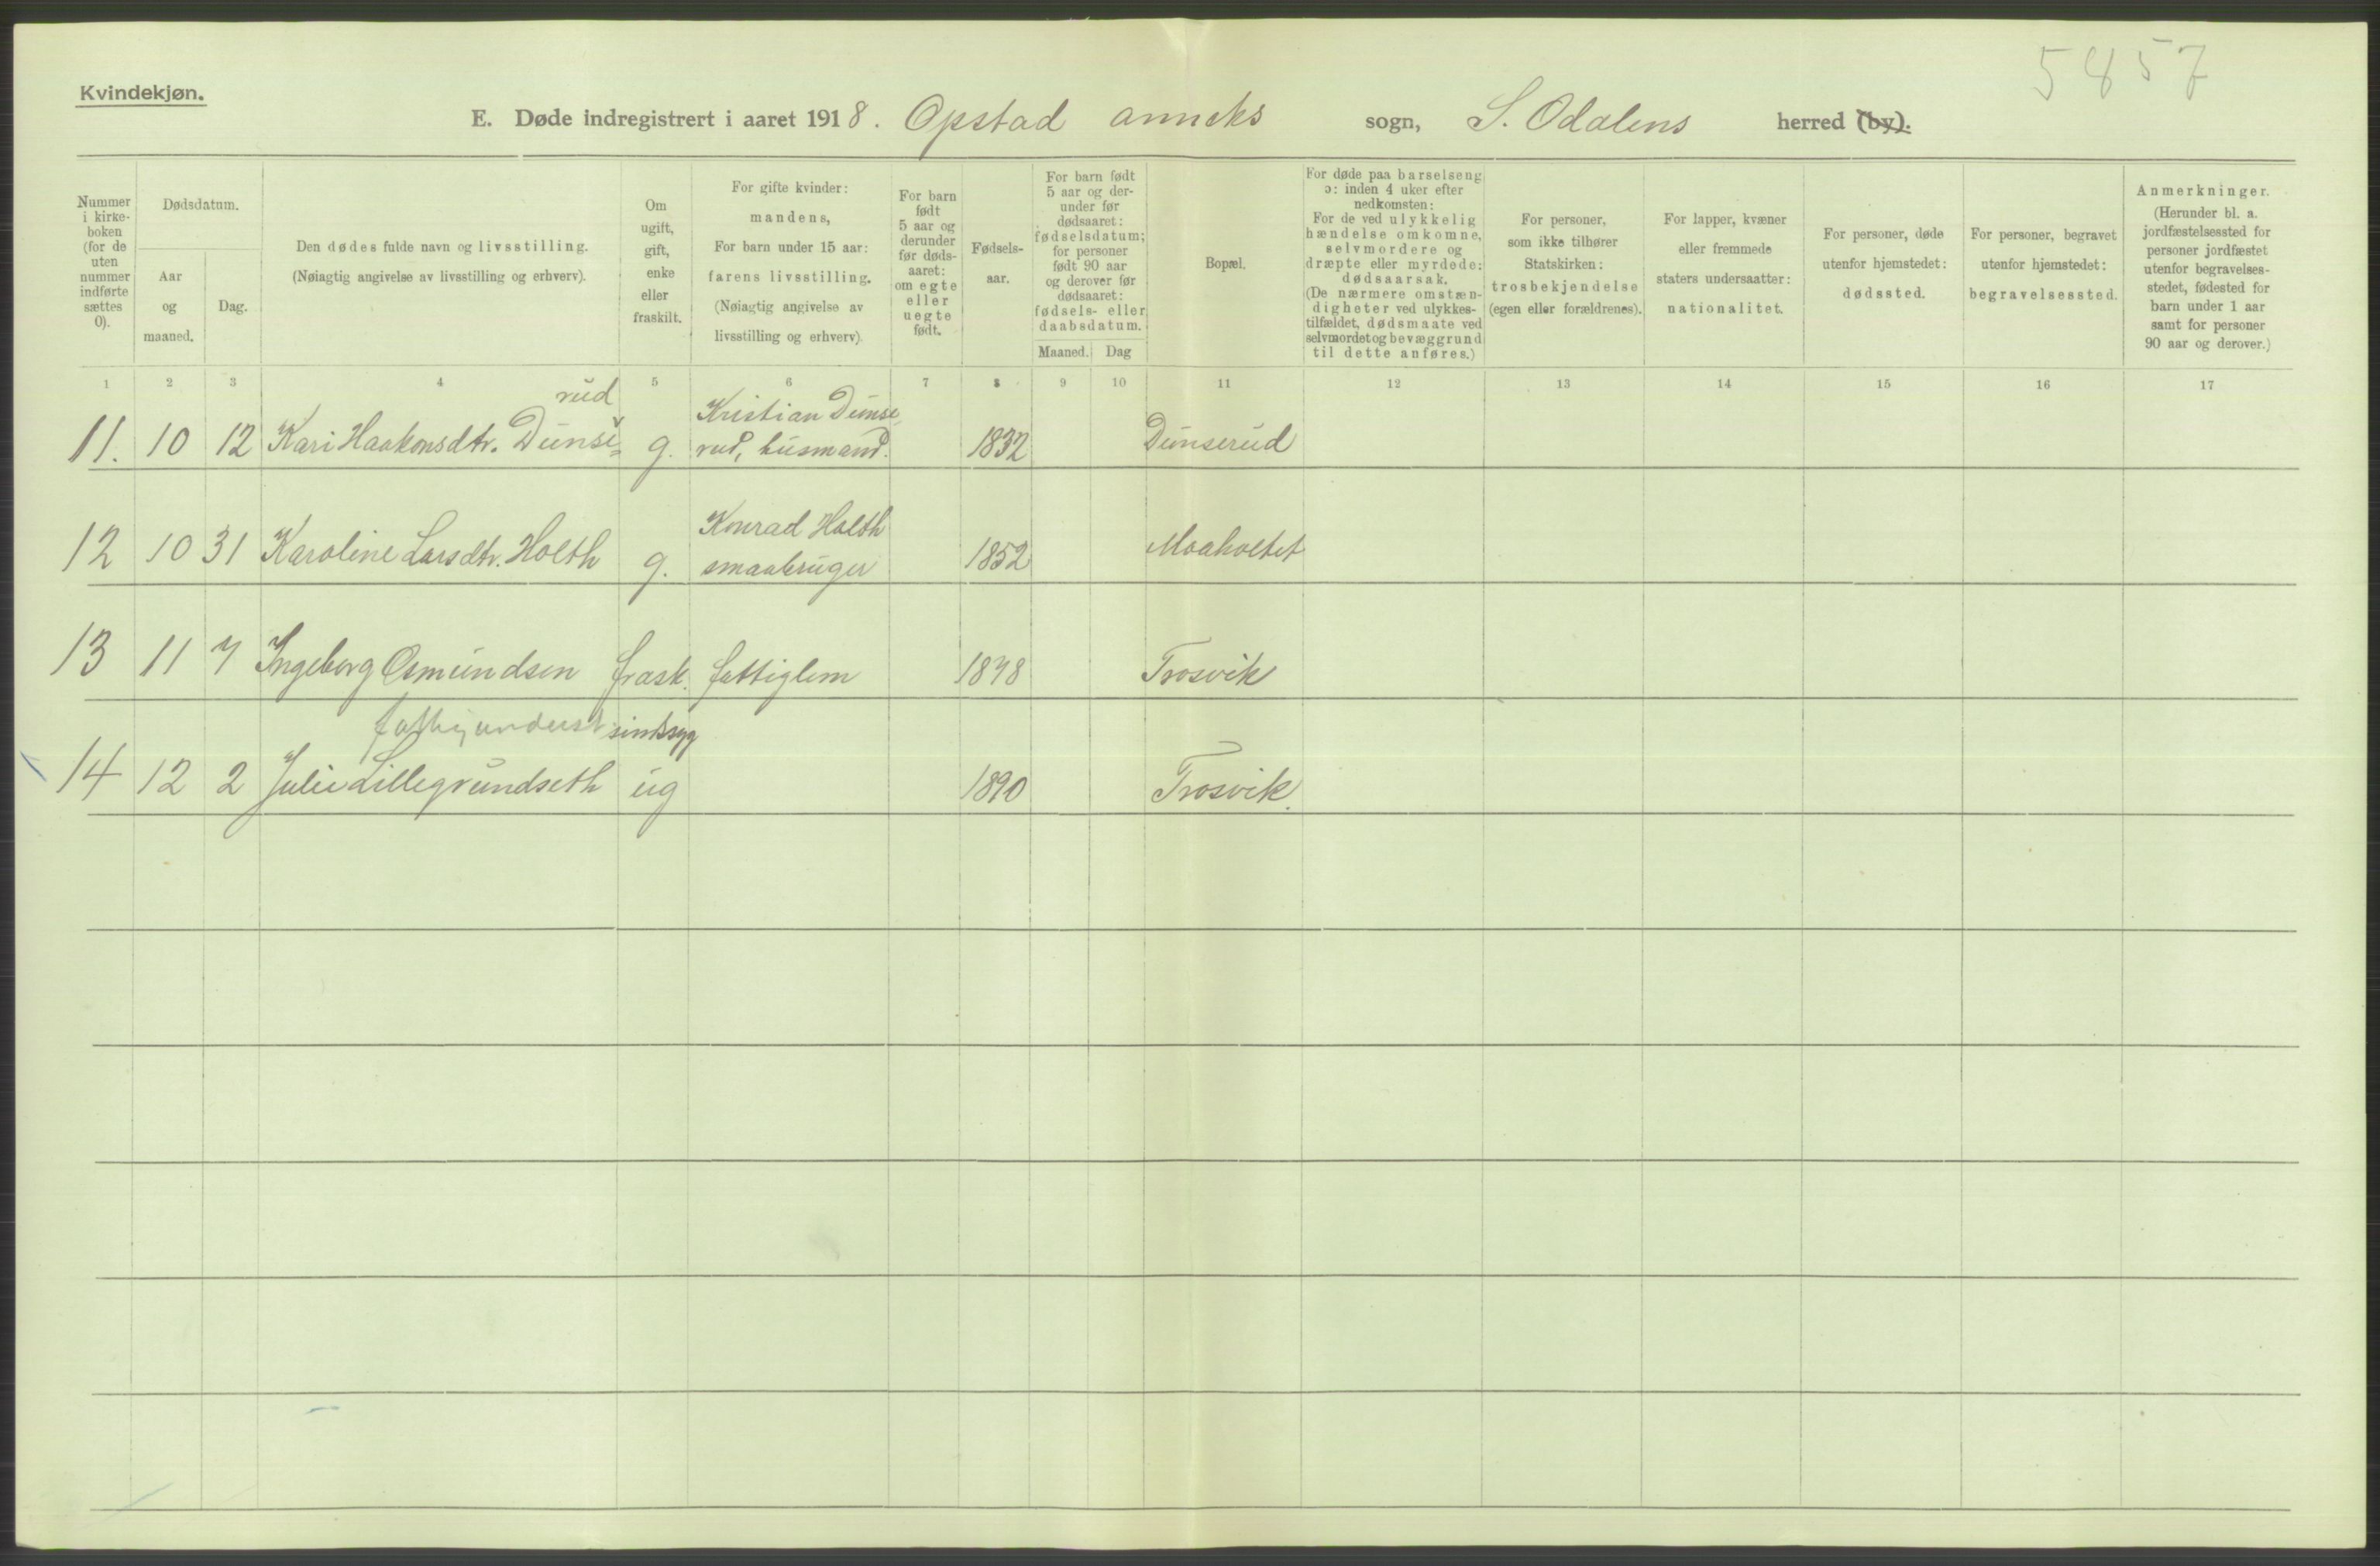 5857
Kvindekjøn.
E. Døde indregistrert i aaret 1918. Opstad anneks sogn, S. Odalens herred (by).
Nummer i kirke- boken (for de uten nummer indførte sættes 0).
Dødsdatum.
Aar og maaned.
Dag.
Den dødes fulde navn og livsstilling.
(Nøiagtig angivelse av livsstilling og erhverv).
Om ugift, gift, enke eller fraskilt.
For gifte kvinder:
mandens,
For barn under 15 aar:
farens livsstilling.
(Nøiagtig angivelse av
livsstilling og erhverv).
For barn født 5 aar og derunder før døds- aaret: om egte eller uegte født.
Fødsels- aar.
For barn født 5 aar og der- under før dødsaaret: fødselsdatum; for personer født 90 aar og derover før dødsaaret: fødsels- eller daabsdatum.
Maaned. Dag
Bopæl.
For døde paa barselseng
ɔ: inden 4 uker efter
nedkomsten:
For de ved ulykkelig
hændelse omkomne,
selvmordere og
dræpte eller myrdede:
dødsaarsak.
(De nærmere omstæn-
digheter ved ulykkes-
tilfældet, dødsmaate ved
selvmordet og bevæggrund
til dette anføres.)
For personer,
som ikke tilhører
Statskirken:
trosbekjendelse
(egen eller forældrenes).
For lapper, kvæner
eller fremmede
staters undersaatter:
nationalitet.
For personer, døde
utenfor hjemstedet:
dødssted.
For personer, begravet
utenfor hjemstedet:
begravelsessted.
Anmerkninger.
(Herunder bl. a.
jordfæstelsessted for
personer jordfæstet
utenfor begravelses-
stedet, fødested for
barn under 1 aar
samt for personer
90 aar og derover.)
1 2 3 4 5 6 7 8 9 10 11 12 13 14 15 16 17
rud Kristian Dunse-
11. 10 12 Kari Haakonsdtr. Dunse= g. rud, husmand. 1832 Dunserud
Konrad Holth
12 10 31 Karoline Larsdtr. Holth g. smaabruger 1852 Moaholtet
13 11 7 Ingeborg Osmundsen frask. fattiglem 1848 Trosvik
fattigunderst. sindssyg
14 12 2 Julie Lillegrundseth ug 1890 Trosvik.